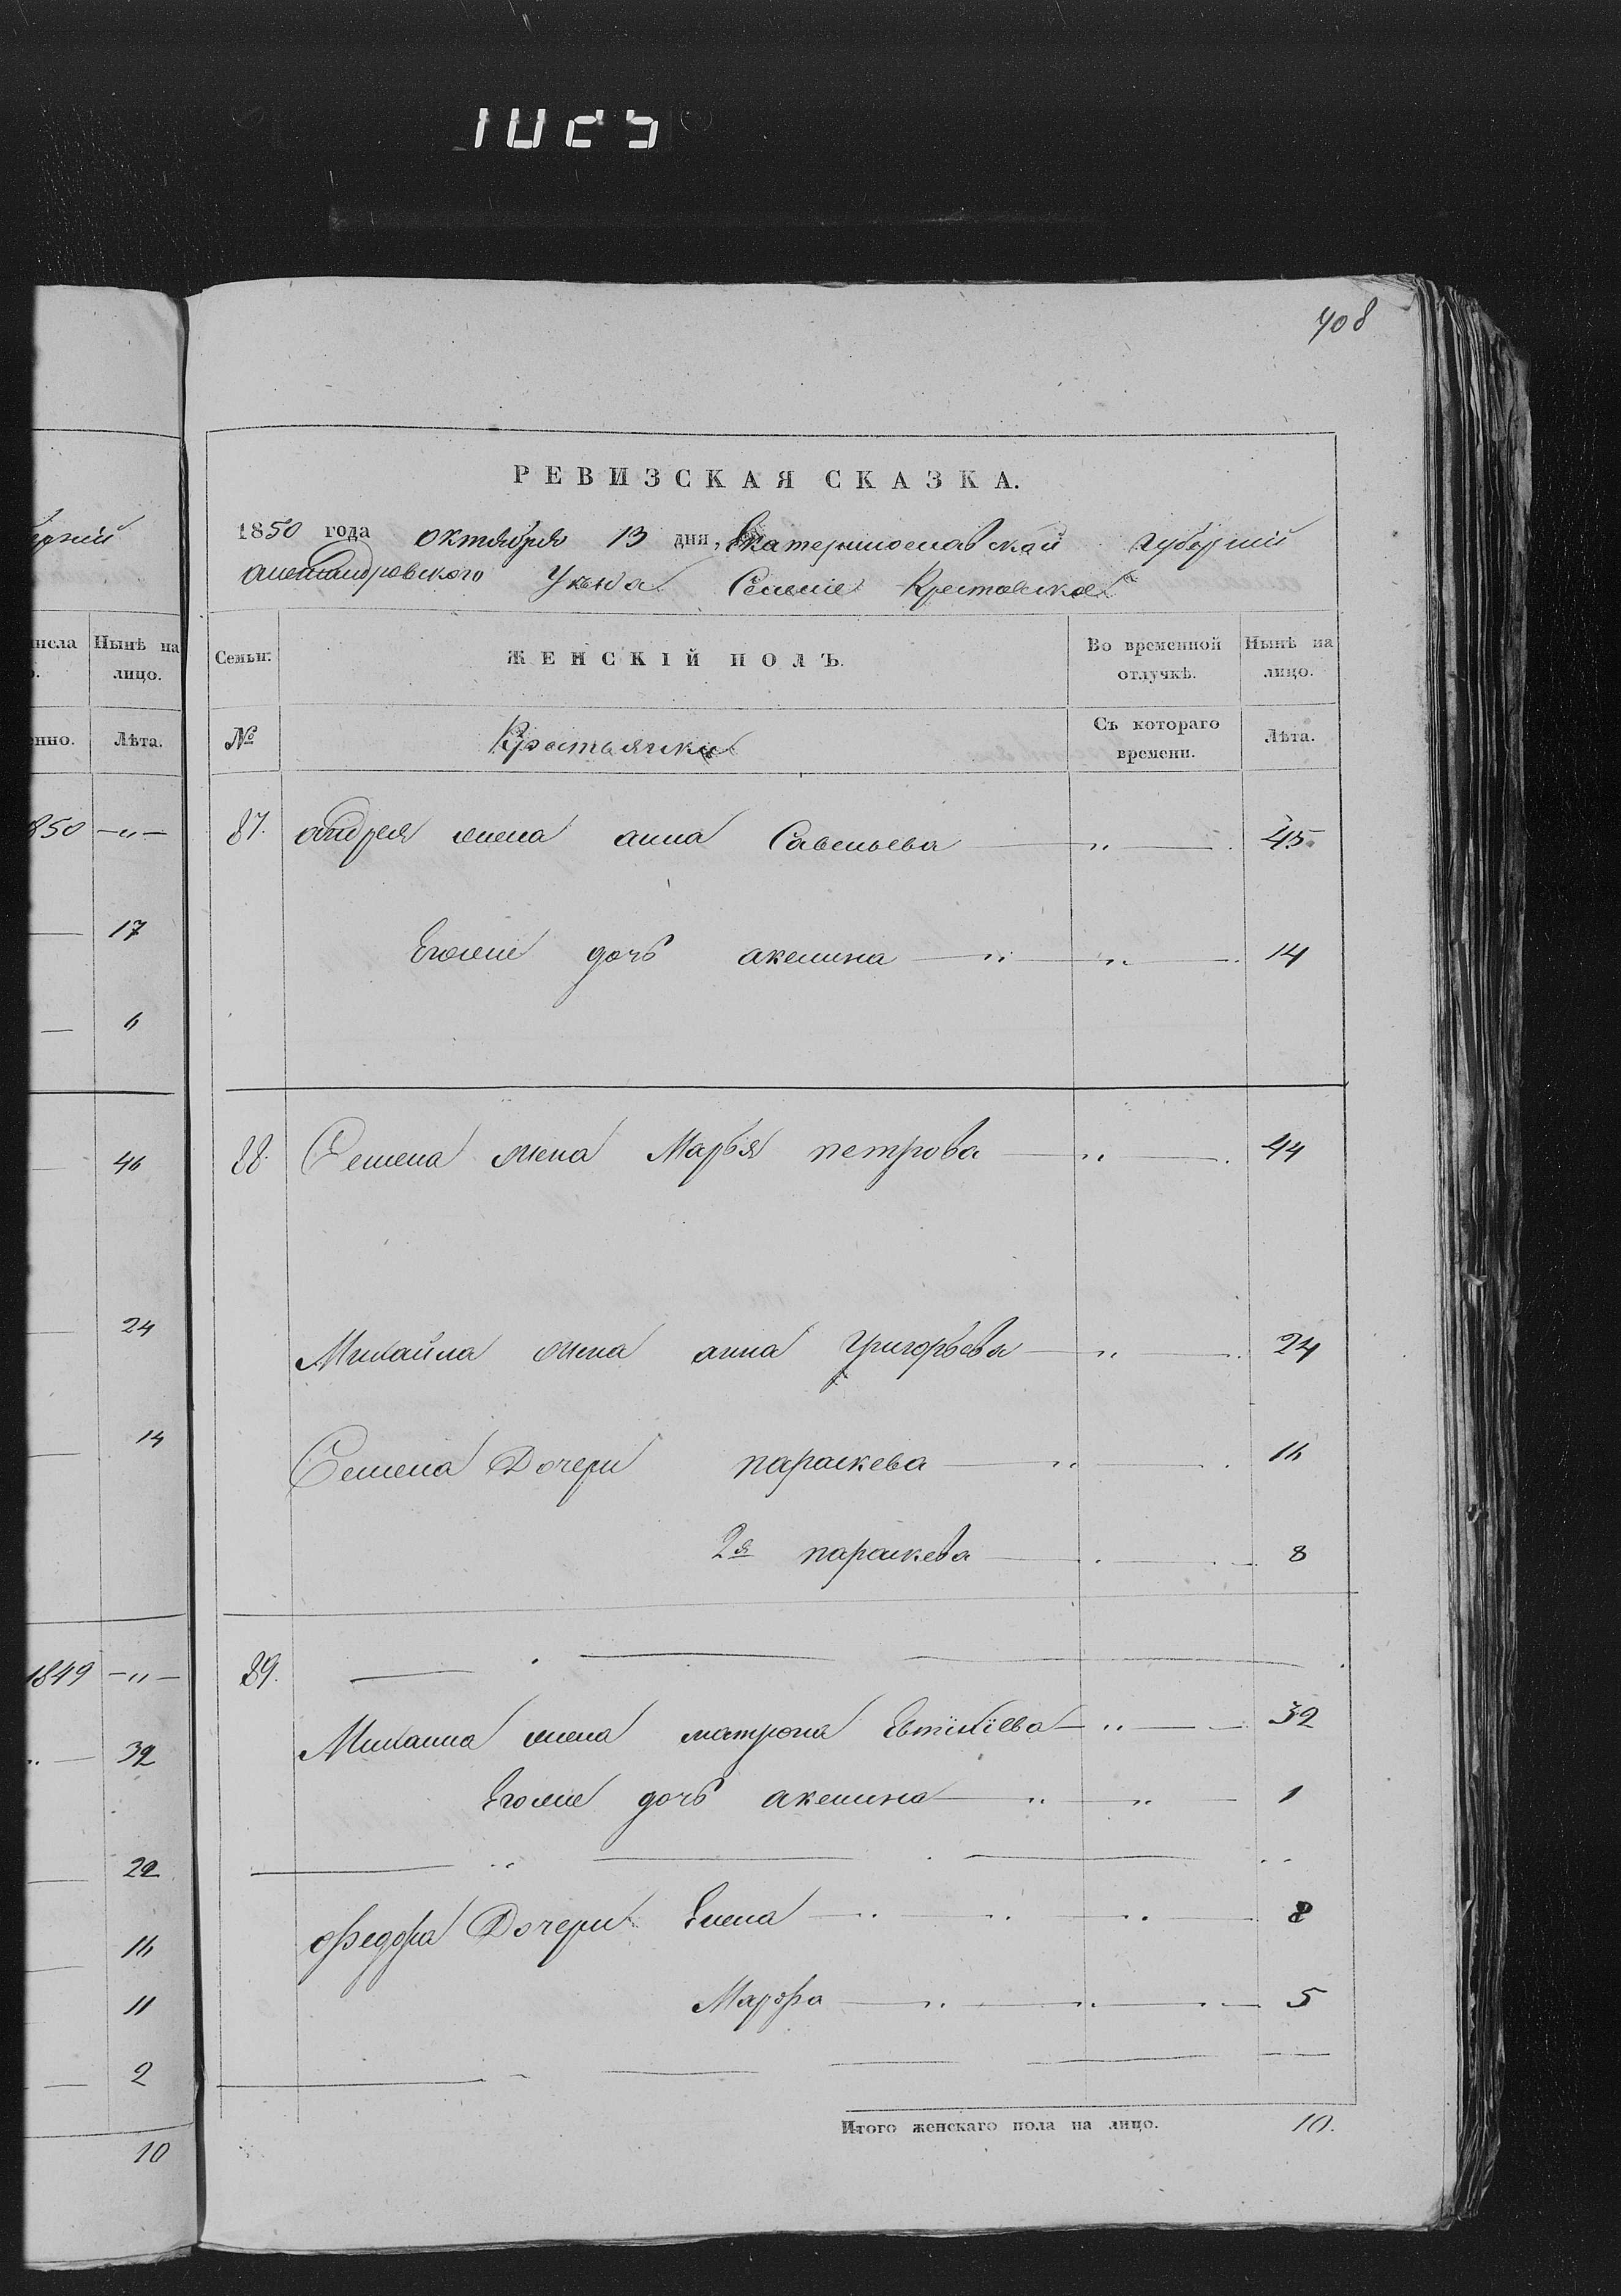 408
РЕВИЗСКАЯ СКАЗКА.
1850 года октября 13 дня, Екатеринославской губерніи
александровского Уезда Селение Крестовское
Семьи. ЖЕНСКІЙ ПОЛЪ. Во временной отлучкѣ. Нынѣ на лицо.
№ Крестьянки Съ котораго времени. Лѣта.
87. андрея жена анна Савельева — " — 45
Егоже дочь акелина — " — " — 14
88. Семена жена Марья петрова — " — 44
Михайла жена анна григорьева — " — 24
Семена Дочери параскева — " — 16
2я параскева — 8
89.
Михаила жена матрона Евтихіева — " — 32
Егоже дочь акелина — " — " — 1
Федора Дочери Елена — " — " — " — 8
Марфа — " — " — " — 5
Итого женскаго пола на лицо. 10.
ерніи
исла Нынѣ на лицо.
енно. Лѣта.
850 — " —
17
6
46
24
14
1849 — " —
32
22
16
11
2
10